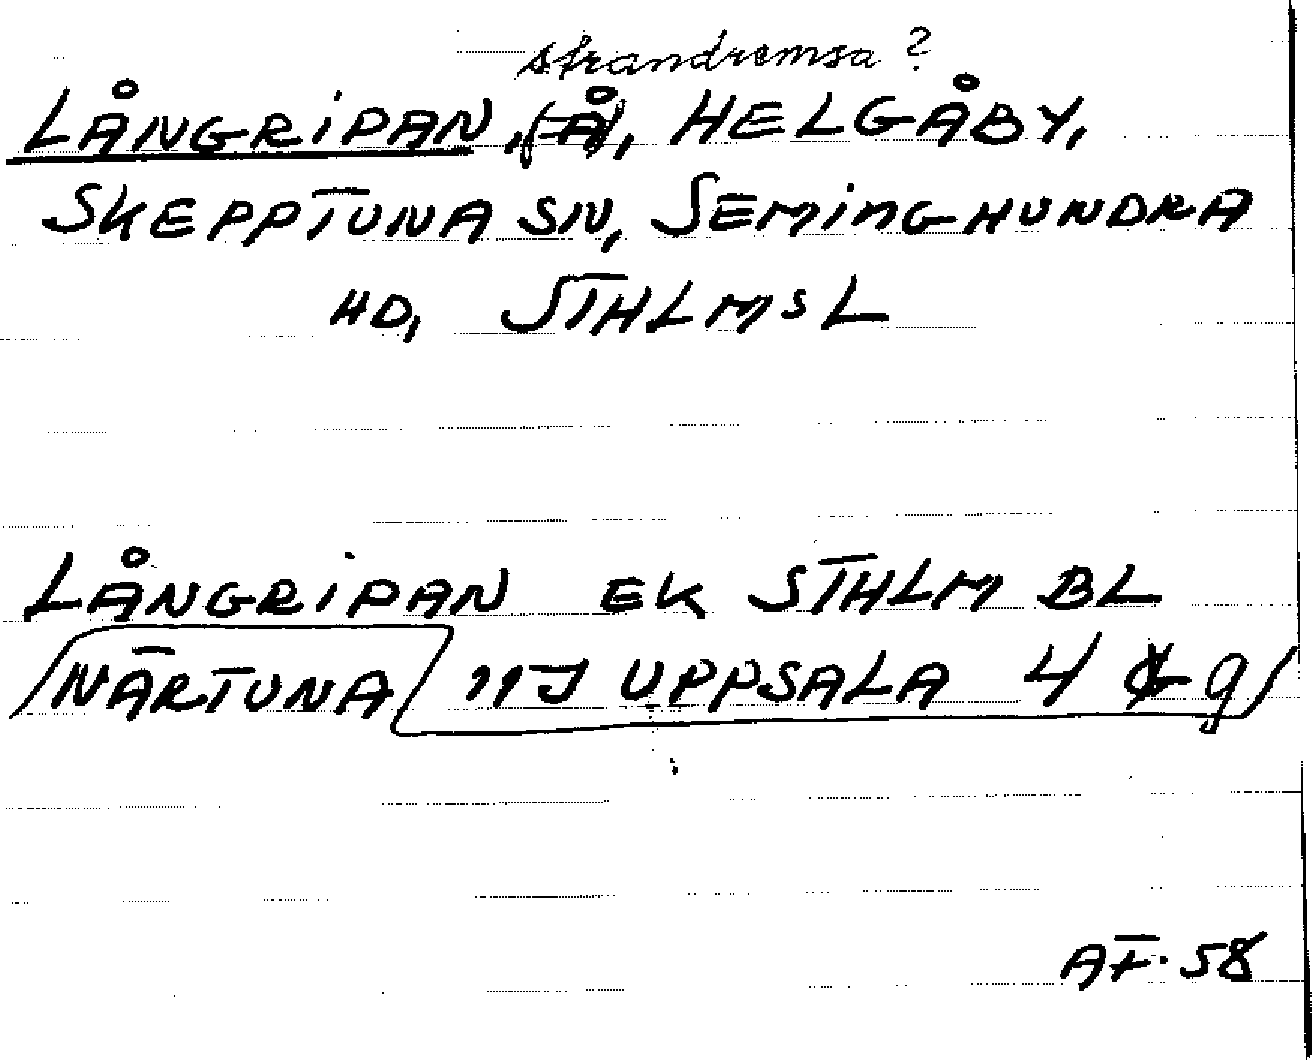 strandremsa ?
LÅNGRIPAN, (Å), HELGÅBY,
SKEPPTUNA SN, SEMINGHUNDRA
HD, STHLMS L
LÅNGRIPAN EK STHLM BL
NÄRTUNA 11J UPPSALA 4 g
AF. 58